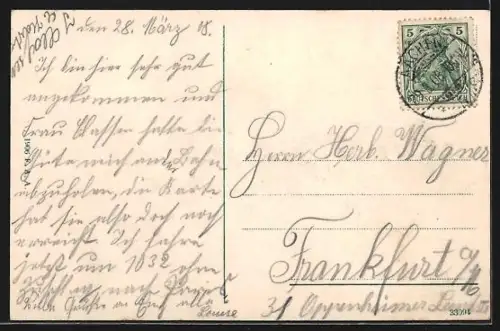 den 28. März 18.
Ich bin hier sehr gut
angekommen und
Frau Classen hatte die
Güte mich an Bahn
abzuholen, die Karte
hat sie also doch noch
erreicht. Ich fahre
jetzt um 1032 ohne
nach
Grüße an Euch alle
Louise
Herrn Herb. Wagner
Frankfurt a/M
31 Oppenheimer
5 5
AACHEN
33394